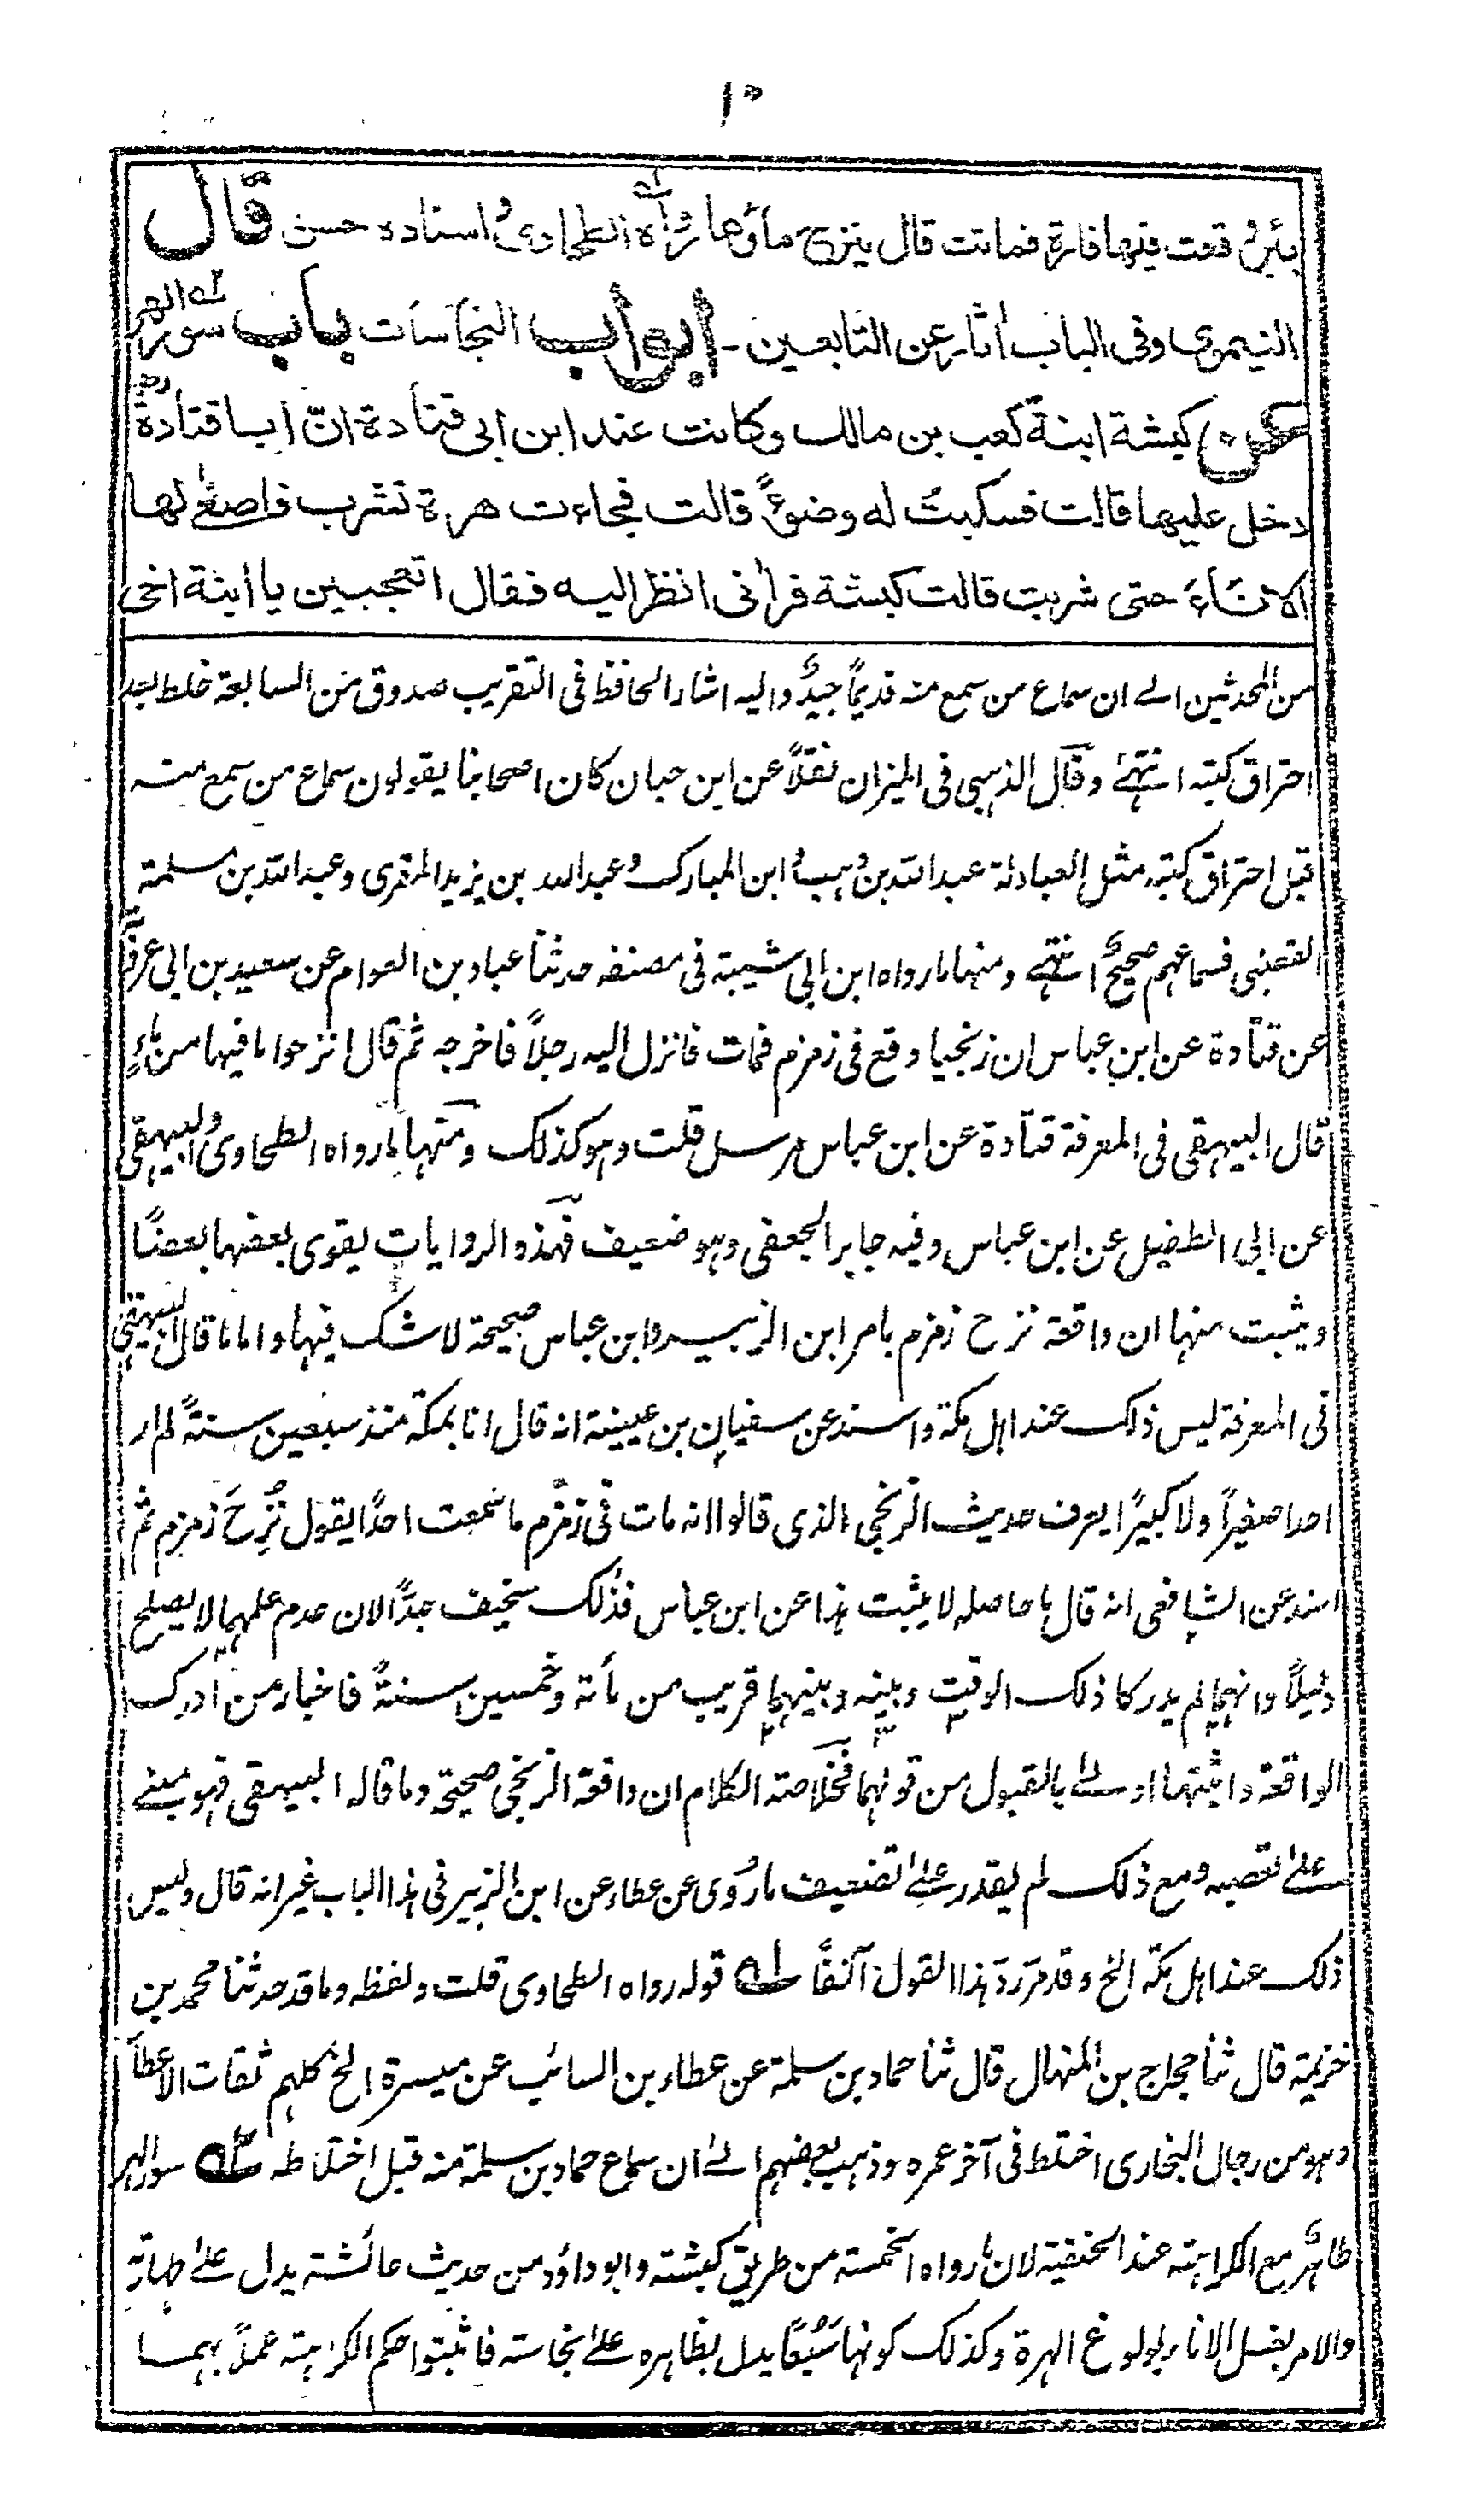 ١٥
بئر وقعت فيها فارة فماتت قال ينزح ماؤها رواه الطحاوى واسناده حسن قال
النيموى وفى الباب اٰثار عن التابعين۔ ابواب النجاسات باب سور الهر
عن كبشة ابنة كعب بن مالك وكانت عند ابن ابى قتادة انّ ابا قتادة رض
دخل عليها قالت فسكبتُ له وضوءً قالت فجاءت هرة تشرب فاصغٰى لها
الاناء حتى شربت قالت كبشة فراٰنى انظر اليه فقال اتعجبين يا ابنة اخى
من المحدثين الے ان سماع من سمع منه قديمًا جيدٌ واليه اشار الحافظ فى التقريب صدوق من السابعة خلط بعد
احتراق كتبه انتهے وقال الذہبى فى الميزان نقلاً عن ابن حبان كان اصحابنا يقولون سماع من سمع منه
قبل احتراق كتبه مثل العبادلة عبد الله بن وہب وابن المبارك وعبد الله بن يزيد المقرى وعبد الله بن مسلمة
القعنبى فسماعہم صحيحٌ انتهے ومنہا ما رواه ابن ابى شيبة فى مصنفه حدثنا عباد بن العوام عن سعيد بن ابى عروبة
عن قتادة عن ابن عباس ان زنجيا وقع فى زمزم فمات فانزل اليه رجلاً فاخرجه ثم قال انزحوا ما فيہا من ماءٍ
قال البيہقى فى المعرفة قتادة عن ابن عباس مرسل قلت وہو كذلك ومنہا ما رواه الطحاوى والبيہقى
عن ابى الطفيل عن ابن عباس وفيه جابر الجعفى وہو ضعيف فہذه الروايات يقوى بعضہا بعضًا
ويثبت منہا ان واقعة نزح زمزم بامر ابن الزبير وابن عباس صحيحة لا شك فيہا واما ما قال البيہقى
فى المعرفة ليس ذلك عند اہل مكة واسند عن سفيان بن عيينة انه قال انا بمكة منذ سبعين سنةً لم ار
احدا صغيرًا ولا كبيرًا يعرف حديث الزنجى الذى قالوا انه مات فى زمزم ما سمعت احدًا يقول نُزِحَ زمزم ثم
اسند عن الشافعى انه قال ما حاصله لا يثبت ہذا عن ابن عباس فذلك سخيف جدًّا لان عدم علمہما لا يصلح
دليلاً وانہما لم يدركا ذلك الوقت وبينه وبينہما قريب من مأة وخمسين سنةً فاخبار من ادرك
الواقعة واثبتہا اولے بالقبول من قولہما فخلاصة الكلام ان واقعة الزنجى صحيحة وما قاله البيہقى فہو مبنے
علے تعصبه ومع ذلك لم يقدر علے تضعيف ما رُوى عن عطاء عن ابن الزبير فى ہذا الباب غير انه قال وليس
ذلك عند اہل مكة الخ وقد مرّ ردّ ہذا القول آنفًا لہ قوله رواه الطحاوى قلت ولفظه وما قد حدثنا محمد بن
خزيمة قال ثنا حجاج بن المنہال قال ثنا حماد بن سلمة عن عطاء بن السائب عن ميسرة الخ كلہم ثقات الا عطاء
وہو من رجال البخارى اختلط فى آخر عمره وذہب بعضہم الے ان سماع حماد بن سلمة منه قبل اختلاطه سور الہر
طاہرٌ مع الكراہة عند الحنفية لان ما رواه الخمسة من طريق كبشة وابو داؤد من حديث عائشة يدل علے طہارته
والامر بغسل الاناء بولوغ الہرة وكذلك كونہا سَبُعًا يدل بظاہره علے نجاسة فاثبتوا حكم الكراہة عملاً بہما